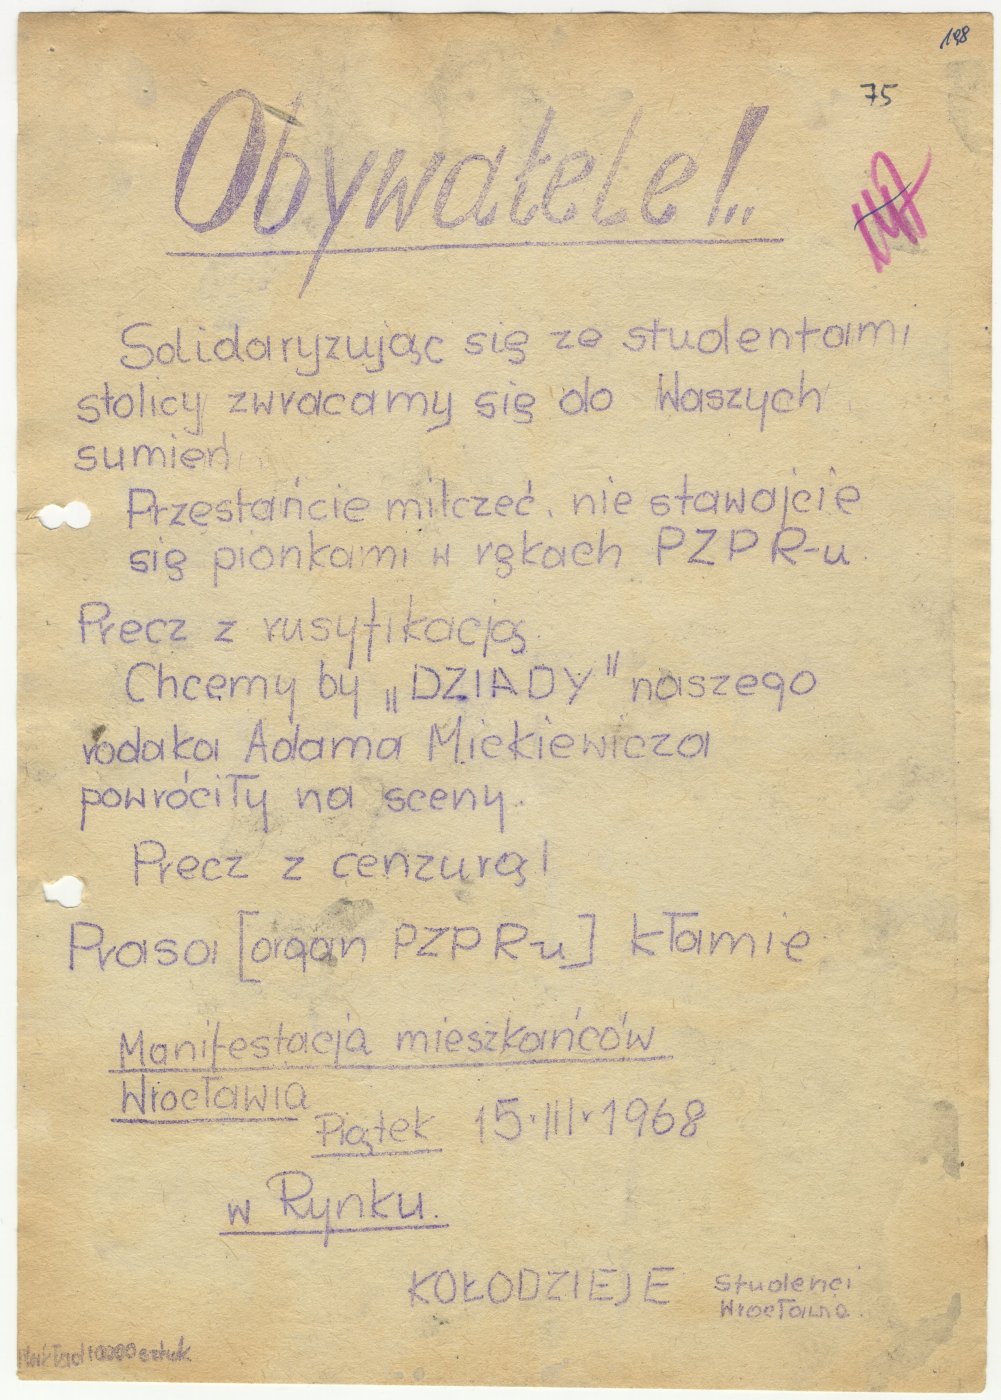 198
75
Obywatele!...
Solidaryzując się ze studentami
stolicy zwracamy się do Waszych
sumień
Przestańcie milczeć, nie stawajcie
się pionkami w rękach PZPR-u.
Precz z rusyfikacją.
Chcemy by „DZIADY" naszego
rodaka Adama Mickiewicza
powróciły na sceny.
Precz z cenzurą!
Prasa [organ PZPR-u] kłamie
Manifestacja mieszkańców
Wrocławia
Piątek 15.III.1968
w Rynku.
KOŁODZIEJE Studenci
Wrocławia.
Nakład 10000 sztuk